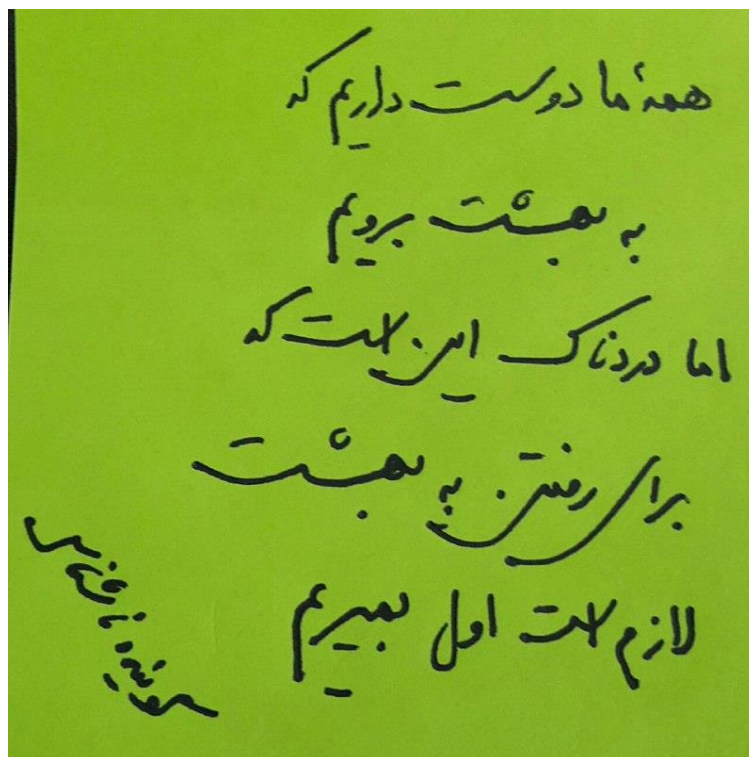 همهٔ ما دوست داریم که
به بهشت برویم
اما دردناک این است که
برای رفتن به بهشت
لازم است اول بمیریم
گوینده ناشناس